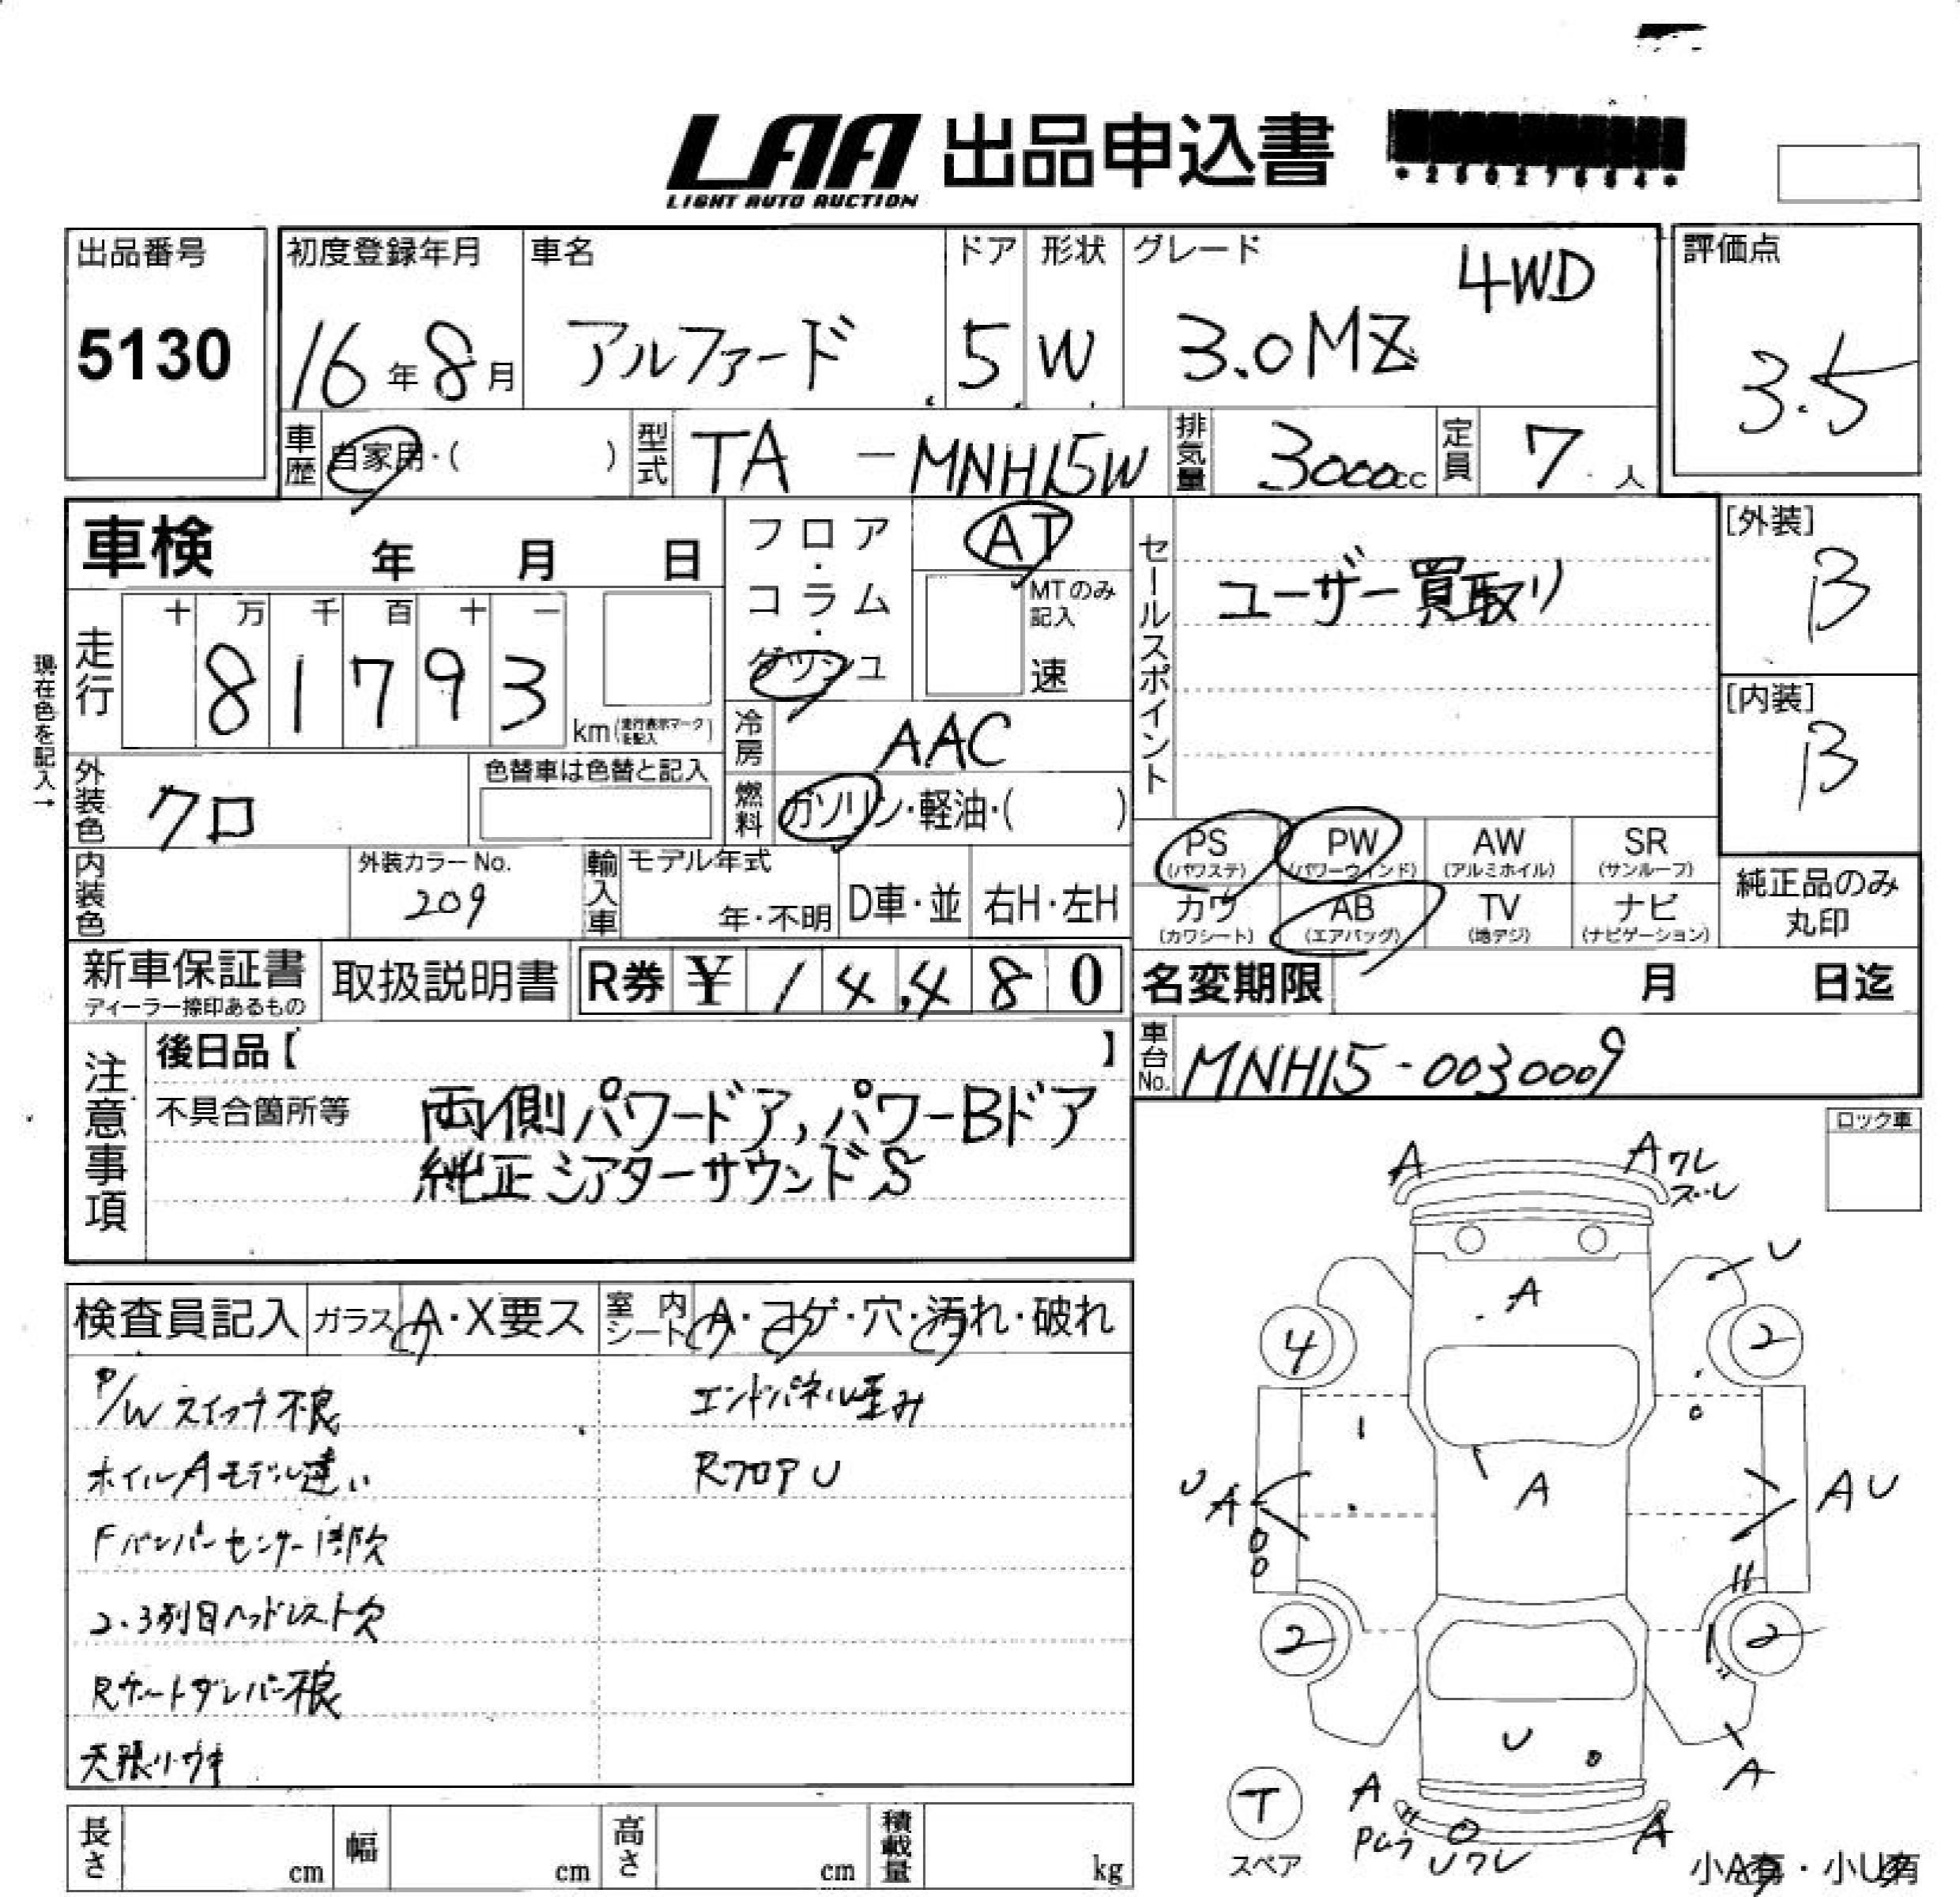 LAA 出品申込書
LIGHT AUTO AUCTION
出品番号 初度登録年月 車名 ドア 形状 グレード 4WD 評価点
5130 16年8月 アルファード 5 W 3.0MZ 3.5
車歴 自家用・( ) 型式 TA - MNH15W 排気量 3000cc 定員 7人
車検 年 月 日 フロア・コラム・ダッシュ AT セールスポイント ユーザー買取り [外装] B
MTのみ記入 速
現在色を記入→
走行 十 万 千 百 十 一
81793 km(走行表示マークを記入) [内装] B
冷房 AAC
外装色 クロ 色替車は色替と記入 燃料 ガソリン・軽油・( )
PS (パワステ) PW (パワーウィンド) AW (アルミホイル) SR (サンルーフ)
内装色 外装カラーNo. 209 輸入車 モデル年式 年・不明 D車・並 右H・左H
カワ (カワシート) AB (エアバッグ) TV (地デジ) ナビ (ナビゲーション) 純正品のみ丸印
新車保証書 ディーラー捺印あるもの 取扱説明書 R券 ¥ 14,480 名変期限 月 日迄
注意事項 後日品【 】 車台No. MNH15-0030009
不具合箇所等 両側パワードア,パワーBドア
純正シアターサウンドS
ロック車
検査員記入 ガラス A・X要ス 室内シート A・コゲ・穴・汚れ・破れ
P/Wスイッチ不良 エンドパネル歪み
ホイルAモデル違い RフロアU
Fバンパーセンサー1ヶ所欠
2.3列目ヘッドレスト欠
Rゲートダンパー不良
天張リウキ
A Aワレ
ズレ
U
A
4 2
U A A AU
2 2
U
A
T スペア
A A
Uワレ
小A有・小U有
長さ cm 幅 cm 高さ cm 積載量 kg